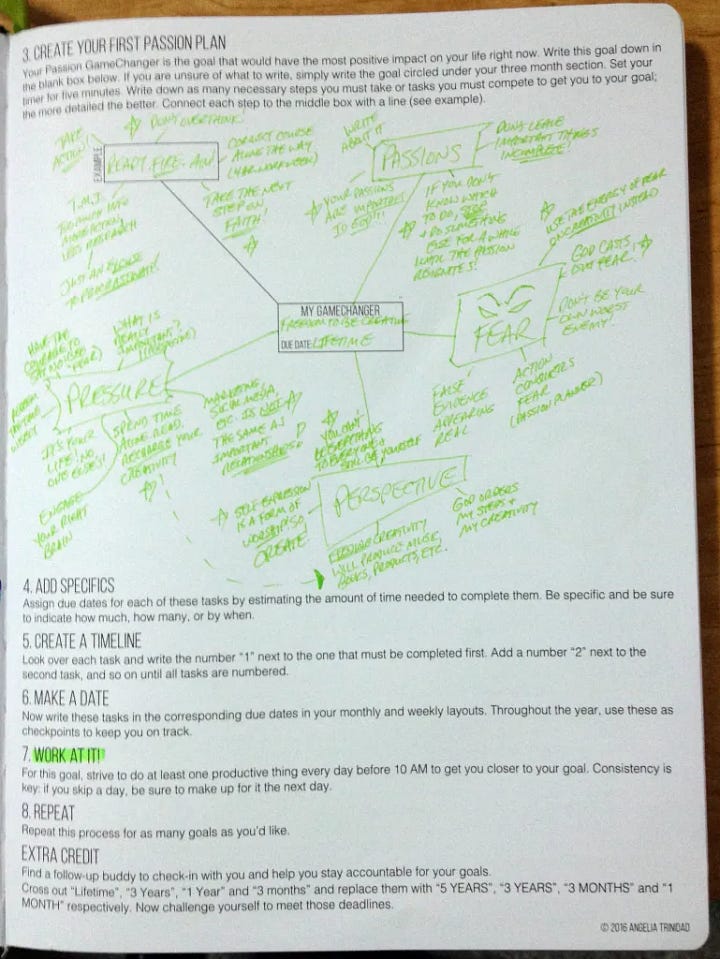 3. CREATE YOUR FIRST PASSION PLAN
Your Passion GameChanger is the goal that would have the most positive impact on your life right now. Write this goal down in
the blank box below. If you are unsure of what to write, simply write the goal circled under your three month section. Set your
timer for five minutes. Write down as many necessary steps you must take or tasks you must compete to get you to your goal;
the more detailed the better. Connect each step to the middle box with a line (see example).
TAKE
ACTION!
DON'T OVERTHINK
EXAMPLE
READY. FIRE. AIM
CORRECT COURSE
ALONG THE WAY
T.M.I.
TOO MUCH INTO
MORE ACTION,
LESS RESEARCH
JUST AN EXCUSE
TO PROCRASTINATE!
TAKE THE NEXT
STEP ON
FAITH!
WRITE
ABOUT IT
PASSIONS
DON'T LEAVE
IMPORTANT THINGS
INCOMPLETE!
YOUR PASSIONS
ARE IMPORTANT
TO GOD!!!
IF YOU DON'T
KNOW WHAT
TO DO, STOP
+ DO SOMETHING
ELSE FOR A WHILE
UNTIL THE PASSION
REIGNITES!
MY GAMECHANGER
FREEDOM TO BE CREATIVE
DUE DATE: LIFETIME
FEAR
USE THE ENERGY OF FEAR
ON CREATIVITY INSTEAD
GOD CASTS
OUT FEAR!
DON'T BE YOUR
OWN WORST
ENEMY!
FALSE
EVIDENCE
APPEARING
REAL
ACTION
CONQUERS
FEAR
(PASSION PLANNER)
PRESSURE
HAVE THE
COURAGE TO
SAY NO
WHAT IS
REALLY
IMPORTANT?
IT'S YOUR
LIFE! NO
ONE ELSE'S!
SPEND TIME
ALONE. READ.
RECHARGE YOUR
CREATIVITY
ENGAGE
YOUR RIGHT
BRAIN
MARKETING,
SOCIAL MEDIA,
ETC. IS NOT
THE SAME AS
IMPORTANT
RELATIONSHIPS
PERSPECTIVE
YOU CAN'T
BE EVERYTHING
TO EVERYONE &
STILL BE YOURSELF
SELF EXPRESSION
IS A FORM OF
WORSHIP. SO,
CREATE.
CREATIVITY
WILL PRODUCE MUSIC,
BOOKS, PRODUCTS, ETC.
GOD ORDERS
MY STEPS +
MY CREATIVITY
4. ADD SPECIFICS
Assign due dates for each of these tasks by estimating the amount of time needed to complete them. Be specific and be sure
to indicate how much, how many, or by when.
5. CREATE A TIMELINE
Look over each task and write the number "1" next to the one that must be completed first. Add a number "2" next to the
second task, and so on until all tasks are numbered.
6. MAKE A DATE
Now write these tasks in the corresponding due dates in your monthly and weekly layouts. Throughout the year, use these as
checkpoints to keep you on track.
7. WORK AT IT!
For this goal, strive to do at least one productive thing every day before 10 AM to get you closer to your goal. Consistency is
key: if you skip a day, be sure to make up for it the next day.
8. REPEAT
Repeat this process for as many goals as you'd like.
EXTRA CREDIT
Find a follow-up buddy to check-in with you and help you stay accountable for your goals.
Cross out "Lifetime", "3 Years", "1 Year" and "3 months" and replace them with "5 YEARS", "3 YEARS", "3 MONTHS" and "1
MONTH" respectively. Now challenge yourself to meet those deadlines.
© 2016 ANGELIA TRINIDAD